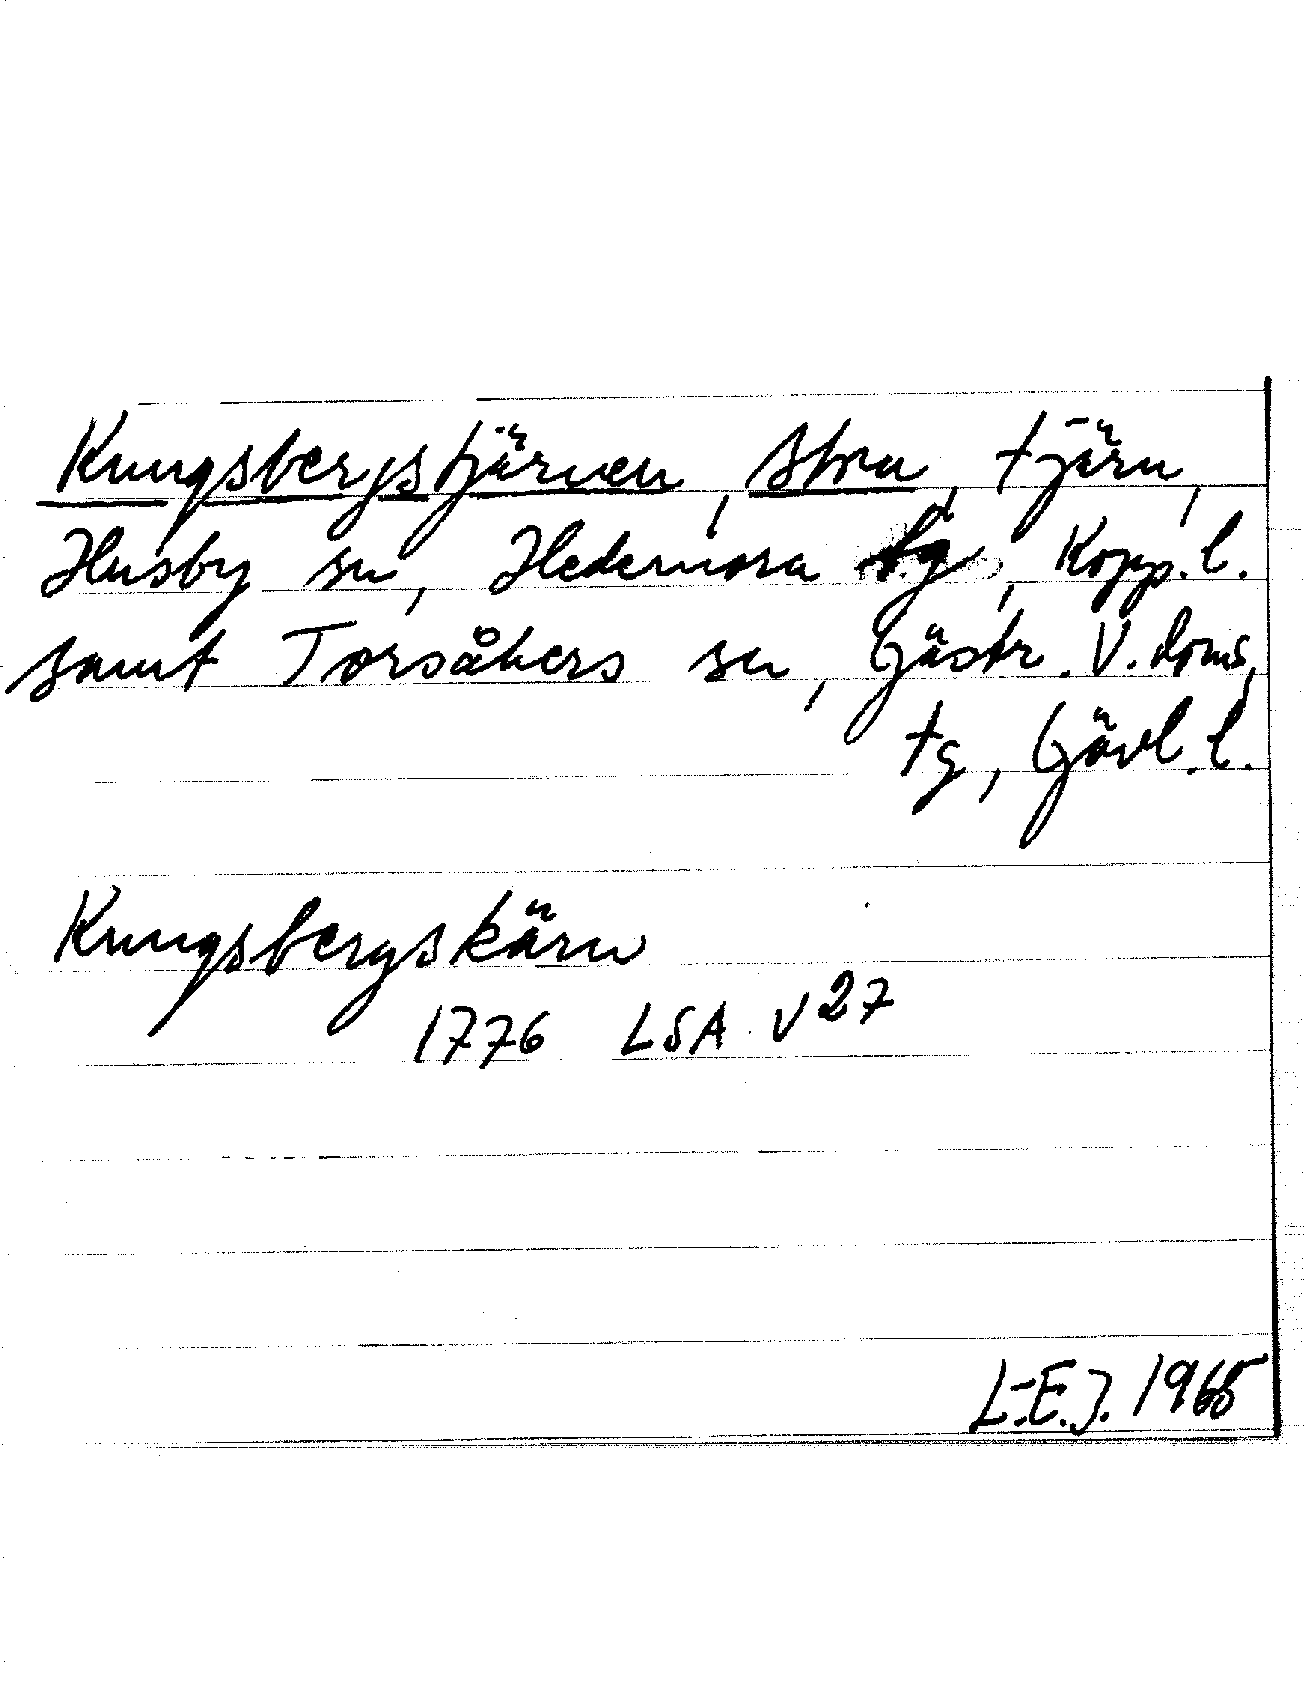 Kungsbergstjärnen, Stora, tjärn,
Husby sn, Hedemora tg, Kopp. l.
samt Torsåkers sn, Gästr. V. doms.
tg, Gävl. l.
Kungsbergskärn
1776 LSA V27
L-E.J. 1965